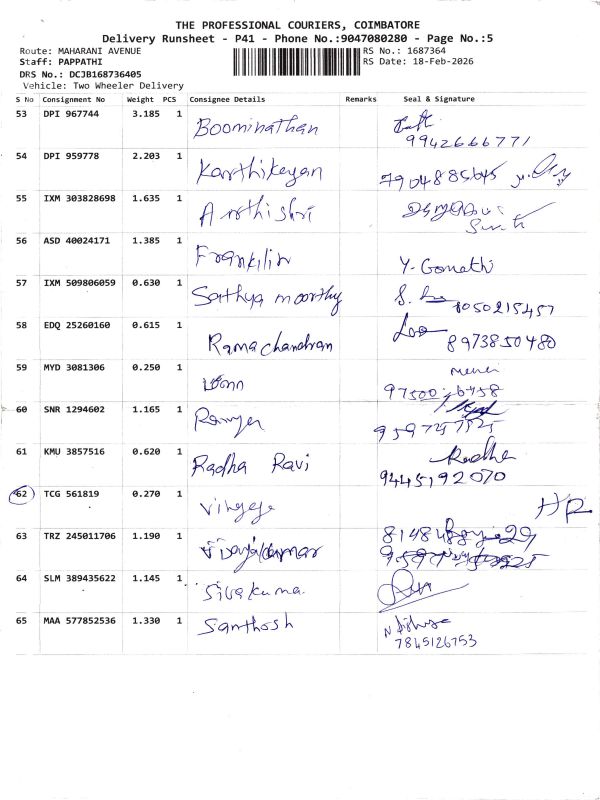 THE PROFESSIONAL COURIERS, COIMBATORE
Delivery Runsheet - P41 - Phone No.:9047080280 - Page No.:5
Route: MAHARANI AVENUE RS No.: 1687364
Staff: PAPPATHI RS Date: 18-Feb-2026
DRS No.: DCJB168736405
Vehicle: Two Wheeler Delivery
S No Consignment No Weight PCS Consignee Details Remarks Seal & Signature
53 DPI 967744 3.185 1 Boominathan
9942666771
54 DPI 959778 2.203 1 Karthikeyan 7904885645
55 IXM 303828698 1.635 1 Arthishri
56 ASD 40024171 1.385 1 Franklin Y. Gomathi
57 IXM 509806059 0.630 1 Sathya moorthy 8050215457
58 EDQ 25260160 0.615 1 Ramachandran 8973850480
59 MYD 3081306 0.250 1
60 SNR 1294602 1.165 1 Ramya
61 KMU 3857516 0.620 1 Radha Ravi Radha
9445192070
62 TCG 561819 0.270 1 HR
63 TRZ 245011706 1.190 1 Vijayakumar
64 SLM 389435622 1.145 1 Sivakuma.
65 MAA 577852536 1.330 1 Santhosh
7845126753